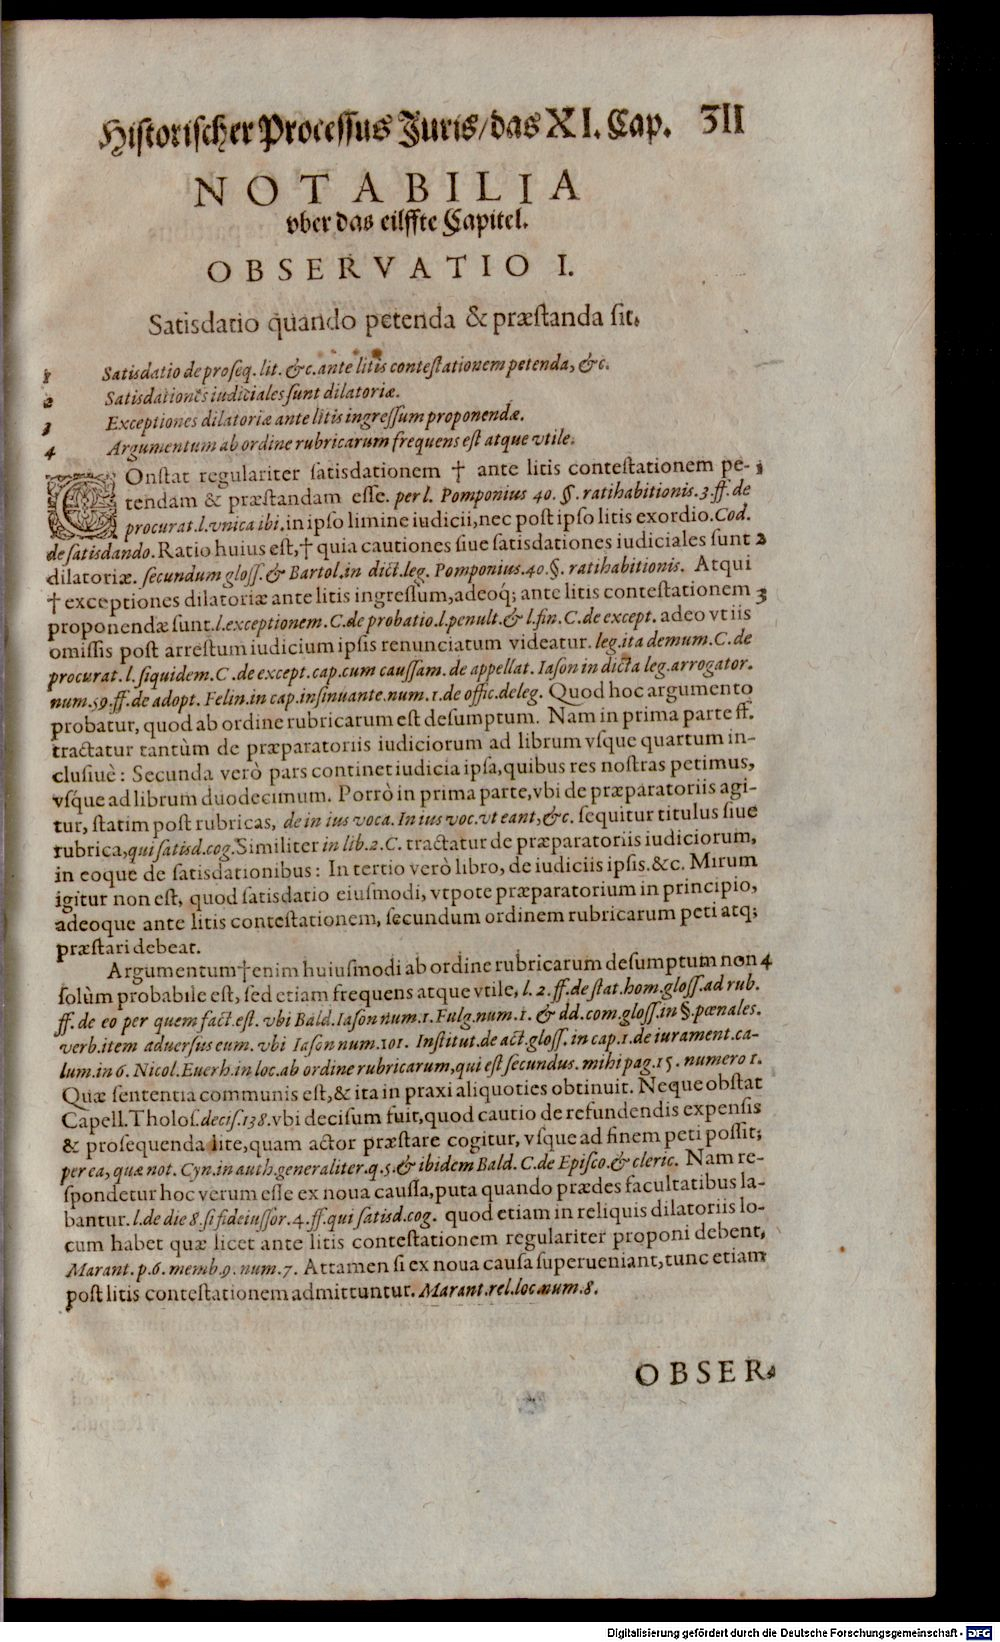 Historischer Processus Juris/das XI. Cap. 311
NOTABILIA
vber das eilffte Capitel.
OBSERVATIO I.
Satisdatio quando petenda & præstanda sit.
1 Satisdatio de proseq. lit. &c. ante litis contestationem petenda, &c.
2 Satisdationes iudiciales sunt dilatoriæ.
3 Exceptiones dilatoriæ ante litis ingressum proponendæ.
4 Argumentum ab ordine rubricarum frequens est atque vtile.
COnstat regulariter satisdationem † ante litis contestationem pe- 1
tendam & præstandam esse. per l. Pomponius 40. §. ratihabitionis. 3. ff. de
procurat. l. vnica ibi. in ipso limine iudicii, nec post ipso litis exordio. Cod.
de satisdando. Ratio huius est, † quia cautiones siue satisdationes iudiciales sunt 2
dilatoriæ. secundum gloss. & Bartol. in dict. leg. Pomponius. 40. §. ratihabitionis. Atqui
† exceptiones dilatoriæ ante litis ingressum, adeoq; ante litis contestationem 3
proponendæ sunt. l. exceptionem. C. de probatio. l. penult. & l. fin. C. de except. adeo vt iis
omissis post arrestum iudicium ipsis renunciatum videatur. leg. ita demum. C. de
procurat. l. siquidem. C. de except. cap. cum caussam. de appellat. Iason in dicta leg. arrogator.
num. 59. ff. de adopt. Felin. in cap. insinuante. num. 1. de offic. deleg. Quod hoc argumento
probatur, quod ab ordine rubricarum est desumptum. Nam in prima parte ff.
tractatur tantùm de præparatoriis iudiciorum ad librum vsque quartum in-
clusiuè: Secunda verò pars continet iudicia ipsa, quibus res nostras petimus,
vsque ad librum duodecimum. Porrò in prima parte, vbi de præparatoriis agi-
tur, statim post rubricas, de in ius voca. In ius voc. vt eant, &c. sequitur titulus siue
rubrica, qui satisd. cog. Similiter in lib. 2. C. tractatur de præparatoriis iudiciorum,
in eoque de satisdationibus: In tertio verò libro, de iudiciis ipsis. &c. Mirum
igitur non est, quod satisdatio eiusmodi, vtpote præparatorium in principio,
adeoque ante litis contestationem, secundum ordinem rubricarum peti atq;
præstari debeat.
Argumentum † enim huiusmodi ab ordine rubricarum desumptum non 4
solùm probabile est, sed etiam frequens atque vtile, l. 2. ff. de stat. hom. gloss. ad rub.
ff. de eo per quem fact. est. vbi Bald. Iason num. 1. Fulg. num. 1. & dd. com. gloss. in §. pœnales.
verb. item aduersus eum. vbi Iason num. 101. Institut. de act. gloss. in cap. 1. de iurament. ca-
lum. in 6. Nicol. Euerh. in loc. ab ordine rubricarum, qui est secundus. mihi pag. 15. numero 1.
Quæ sententia communis est, & ita in praxi aliquoties obtinuit. Neque obstat
Capell. Tholos. decis. 138. vbi decisum fuit, quod cautio de refundendis expensis
& prosequenda lite, quam actor præstare cogitur, vsque ad finem peti possit;
per ea, quæ not. Cyn. in auth. generaliter. q. 5. & ibidem Bald. C. de Episco. & cleric. Nam re-
spondetur hoc verum esse ex noua caussa, puta quando prædes facultatibus la-
bantur. l. de die 8. si fideiussor. 4. ff. qui satisd. cog. quod etiam in reliquis dilatoriis lo-
cum habet quæ licet ante litis contestationem regulariter proponi debent,
Marant. p. 6. memb. 9. num. 7. Attamen si ex noua causa superueniant, tunc etiam
post litis contestationem admittuntur. Marant. rel. loc. num. 8.
OBSER-
Digitalisierung gefördert durch die Deutsche Forschungsgemeinschaft - DFG